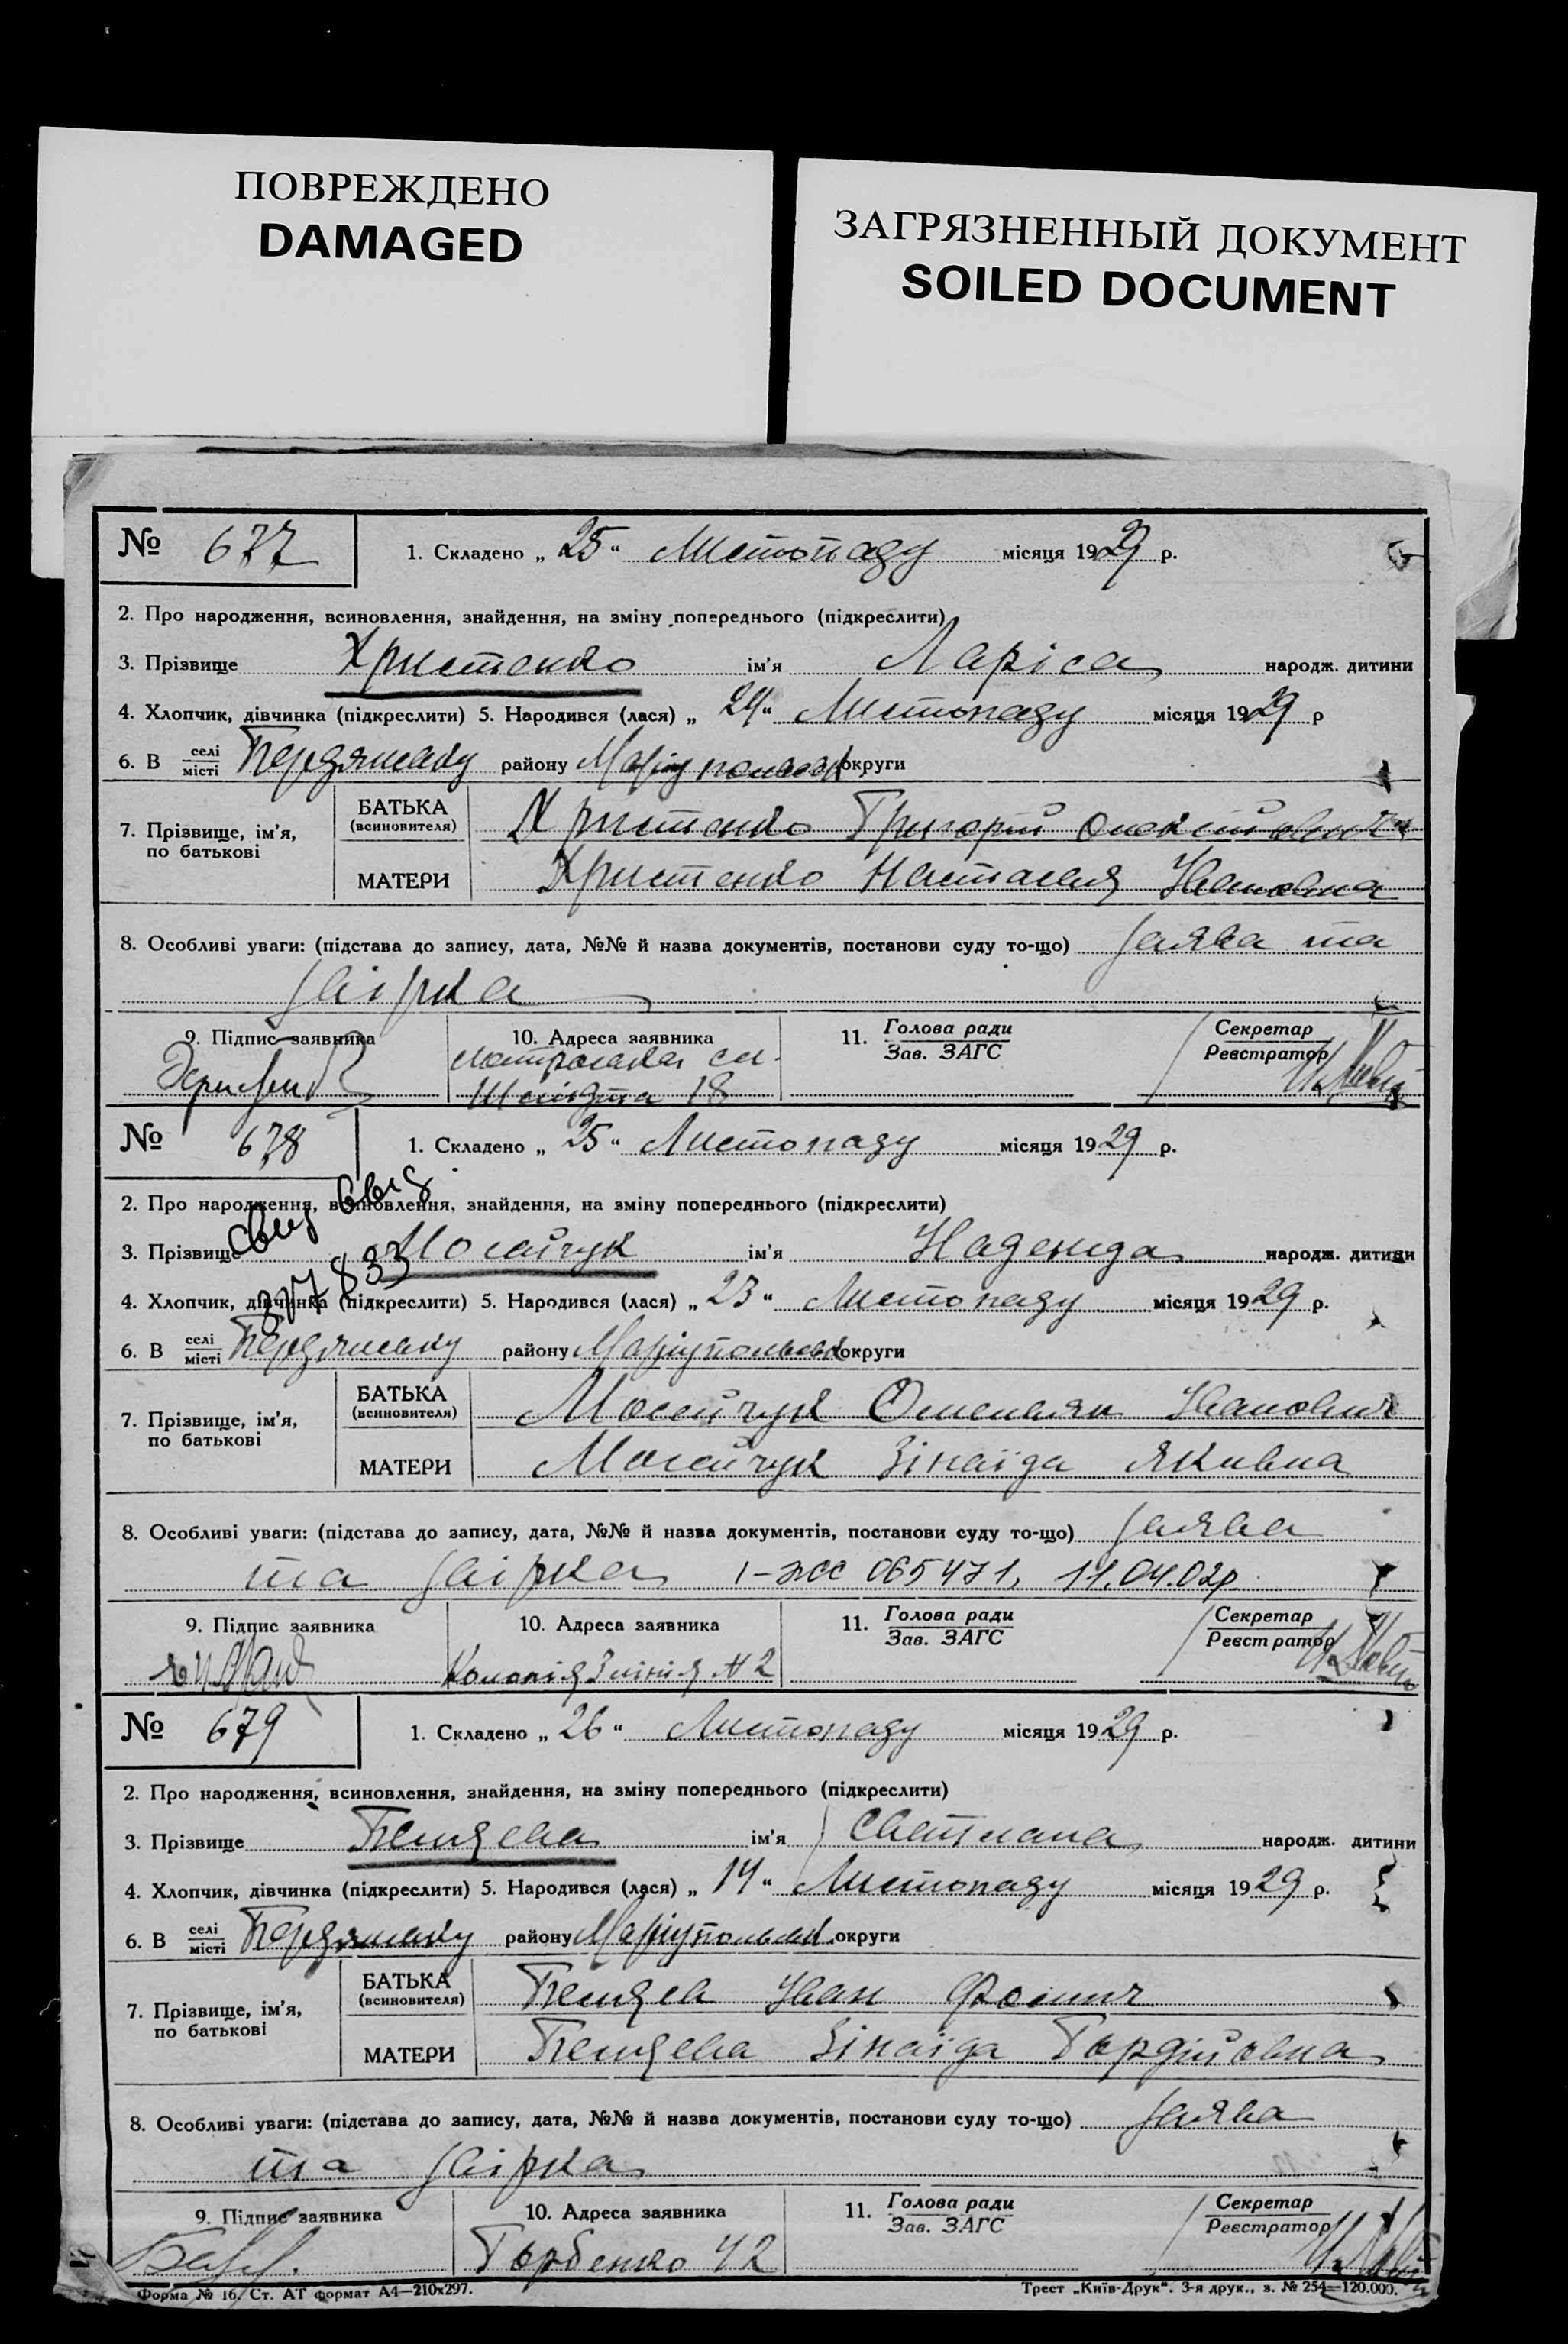 ПОВРЕЖДЕНО
DAMAGED
ЗАГРЯЗНЕННЫЙ ДОКУМЕНТ
SOILED DOCUMENT
№ 677 1. Складено „ 25 “ Листопаду місяця 1929 р.
2. Про народження, всиновлення, знайдення, на зміну попереднього (підкреслити)
3. Прізвище Христенко ім'я Ларіса народж. дитини
4. Хлопчик, дівчинка (підкреслити) 5. Народився (лася) „ 24 “ Листопаду місяця 1929 р
6. В селі/місті Бердянську району Маріупольськ округи
7. Прізвище, ім'я, по батькові
БАТЬКА (всиновителя) Христенко Григорій
МАТЕРИ Христенко Настасия Ивановна
8. Особливі уваги: (підстава до запису, дата, №№ й назва документів, постанови суду то-що) заява та
звірка
9. Підпис заявника 10. Адреса заявника 11. Голова ради/Зав. ЗАГС Секретар/Реєстратор
Шмідта 18
№ 678 1. Складено „ 25 “ Листопаду місяця 1929 р.
2. Про народження, всиновлення, знайдення, на зміну попереднього (підкреслити)
3. Прізвище Мосейчук ім'я Надежда народж. дитини
827833
4. Хлопчик, дівчинка (підкреслити) 5. Народився (лася) „ 23 “ Листопаду місяця 1929 р.
6. В селі/місті Бердянську району Маріупольськ округи
7. Прізвище, ім'я, по батькові
БАТЬКА (всиновителя) Мосейчук Омельян Иванович
МАТЕРИ Мосейчук Зінаїда Якивна
8. Особливі уваги: (підстава до запису, дата, №№ й назва документів, постанови суду то-що) заява
та звірка 1-жс 065471, 11.04.02р
9. Підпис заявника 10. Адреса заявника 11. Голова ради/Зав. ЗАГС Секретар/Реєстратор
Колонія 3 лінія № 2
№ 679 1. Складено „ 26 “ Листопаду місяця 1929 р.
2. Про народження, всиновлення, знайдення, на зміну попереднього (підкреслити)
3. Прізвище ім'я Світлана народж. дитини
4. Хлопчик, дівчинка (підкреслити) 5. Народився (лася) „ 14 “ Листопаду місяця 1929 р.
6. В селі/місті Бердянську району Маріупольськ. округи
7. Прізвище, ім'я, по батькові
БАТЬКА (всиновителя) Иван Фомич
МАТЕРИ Зінаїда Гордійовна
8. Особливі уваги: (підстава до запису, дата, №№ й назва документів, постанови суду то-що) заява
та звірка
9. Підпис заявника 10. Адреса заявника 11. Голова ради/Зав. ЗАГС Секретар/Реєстратор
Горбенко 42
Форма № 16. Ст. АТ формат А4—210х297. Трест „Київ-Друк“. 3-я друк., з. № 254—120.000.